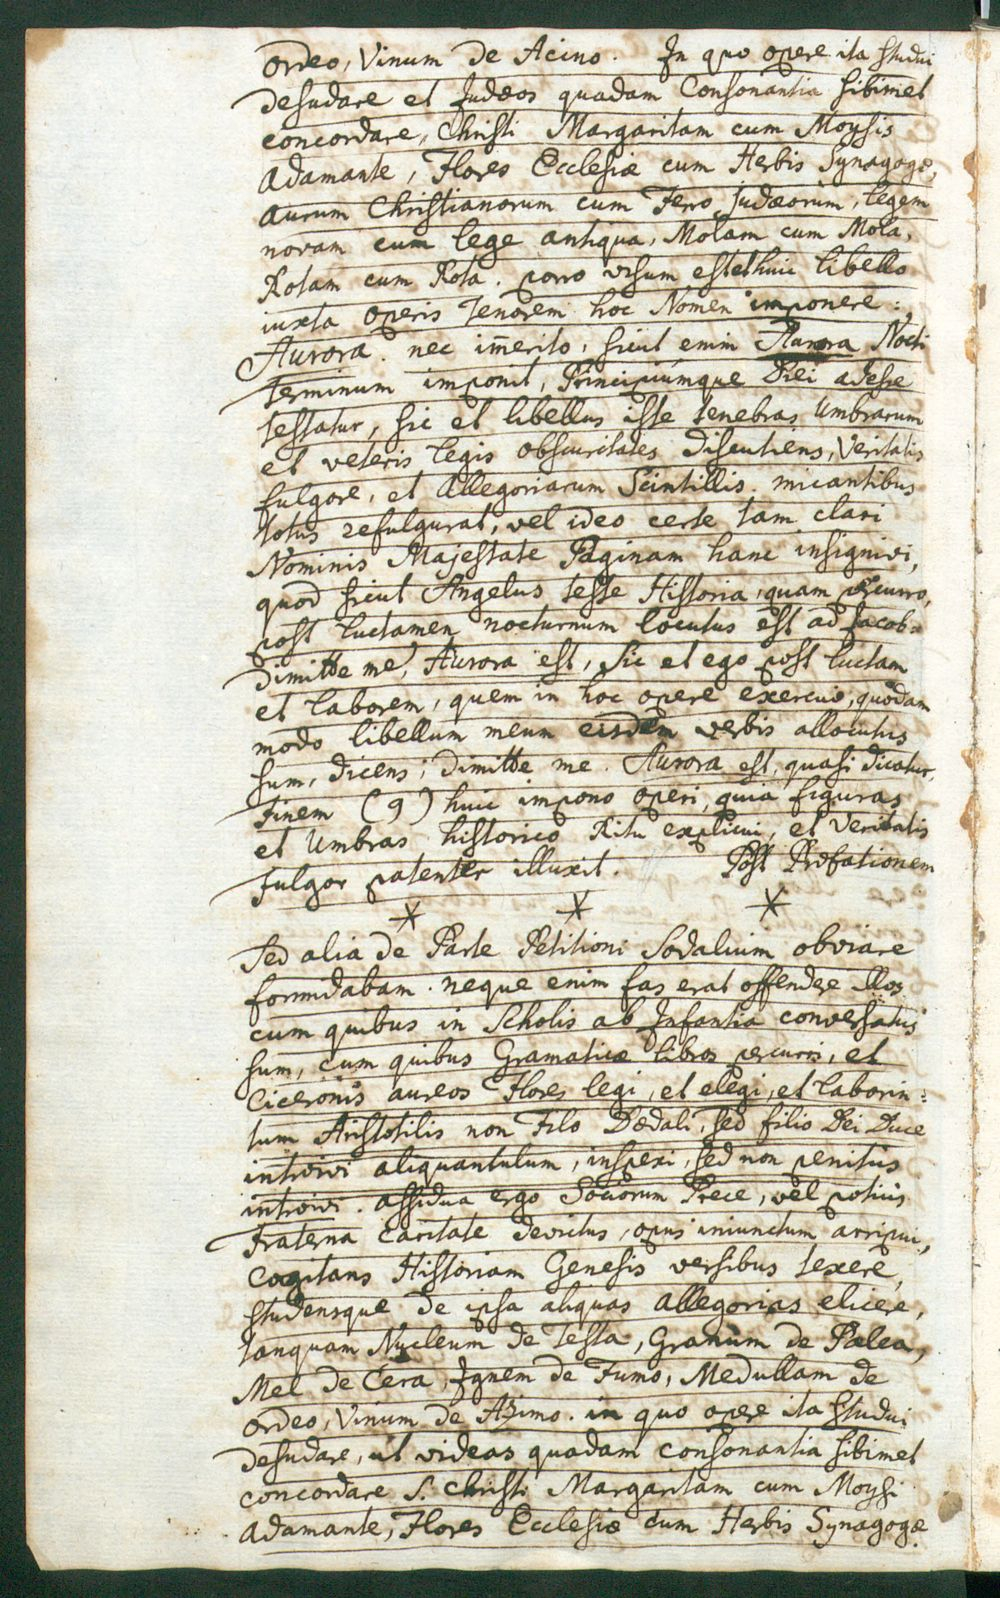 ordeo, Vinum de Acino. In quo opere ita studui
desudare et Judæos quadam Consonantia sibimet
concordare, Christi Margaritam cum Moysis
Adamante, Flores Ecclesiæ cum Herbis Synagogæ,
Aurum Christianorum cum Ferro Judæorum, legem
novam cum lege antiqua, Molam cum Mola,
Rotam cum Rota. porro visum est huic libello
iuxta operis tenorem hoc Nomen imponere:
Aurora. nec im̄erito, sicut enim Aurora Nocti
terminum imponit, Principiumque Diei adesse
testatur, sic et libellus iste tenebras Umbrarum
et veteris legis obscuritates discutiens, Veritatis
fulgore, et Allegoriarum Scintillis micantibus
totus refulgurat, vel ideo certe tam clari
Nominis Majestate Paginam hanc insignivi,
quod sicut Angelus teste Historia, quam percurro,
post luctamen nocturnum locutus est ad Jacob:
dimitte me, Aurora est, sic et ego post luctam
et laborem, quem in hoc opere exercui, quodam
modo libellum meum eisdem verbis allocutus
sum, dicens; dimitte me. Aurora est, quasi dicatur,
Finem (9) huic impono operi, quia figuras
et Umbras historico Ritu explicui, et Veritatis
fulgor patenter illuxit. Post Præfationem
* * *
Sed alia de Parte Petitioni Sodalium obviare
formidabam. neque enim fas erat offendere illos
cum quibus in Scholis ab Infantia conversatus
sum, cum quibus Gramaticæ libros percurri, et
Ciceronis aureos Flores legi, et elegi, et laborin:
tum Aristotilis non Filo Dædali, sed filio Dei Duce
introivi aliquantulum, inspexi, sed non penitus
introivi. assidua ergo Sociorum Prece, vel potius
Fraterna Caritate devictus, opus iniunctum arripui,
cogitans Historiam Genesis versibus texere,
studensque de ipsa aliquas allegorias elicere,
tanquam Nucleum de Testa, Granum de Palea,
Mel de Cera, Ignem de Fumo, Medullam de
ordeo, Vinum de Azimo. in quo opere ita studui
desudare, ut videas quadam consonantia sibimet
concordare S. Christi Margaritam cum Moysi
Adamante, Flores Ecclesiæ cum Herbis Synagogæ.